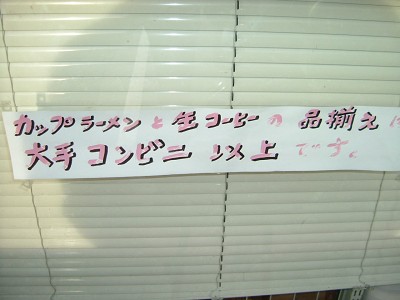 カップラーメンと生コーヒーの品揃えは
大手コンビニ以上です。